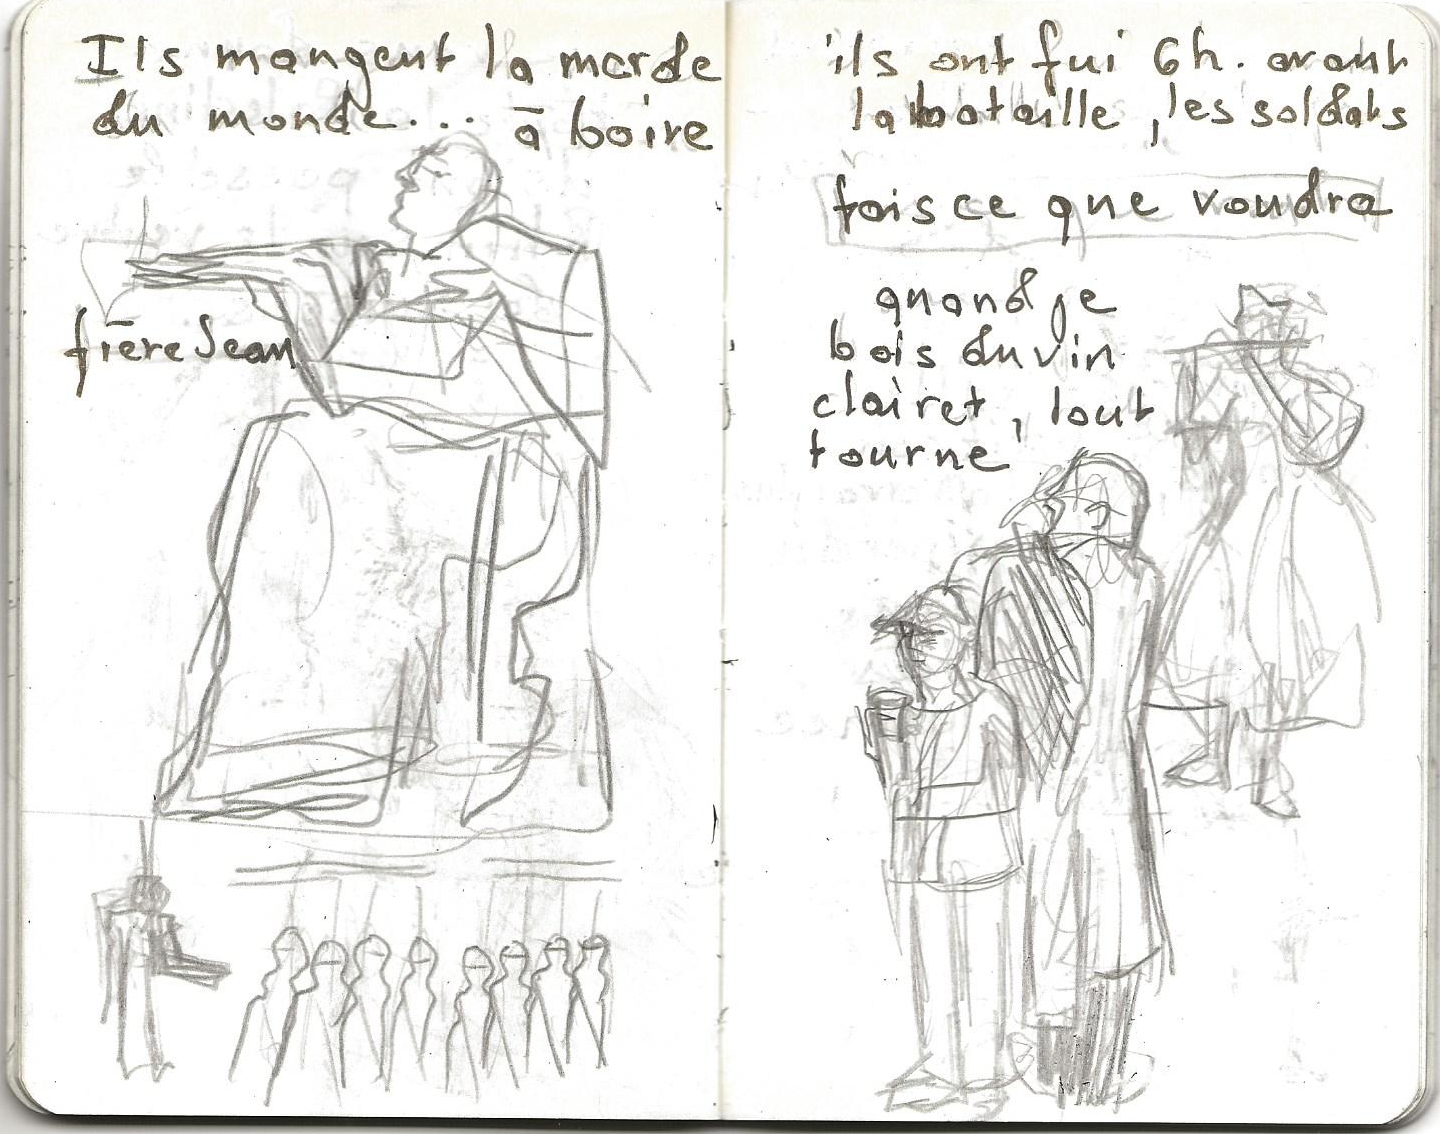 Ils mangent la merde
du monde... à boire
frère Jean
ils ont fui 6h. avant
la bataille, les soldats
fais ce que voudra
quand je
bois du vin
clairet, tout
tourne